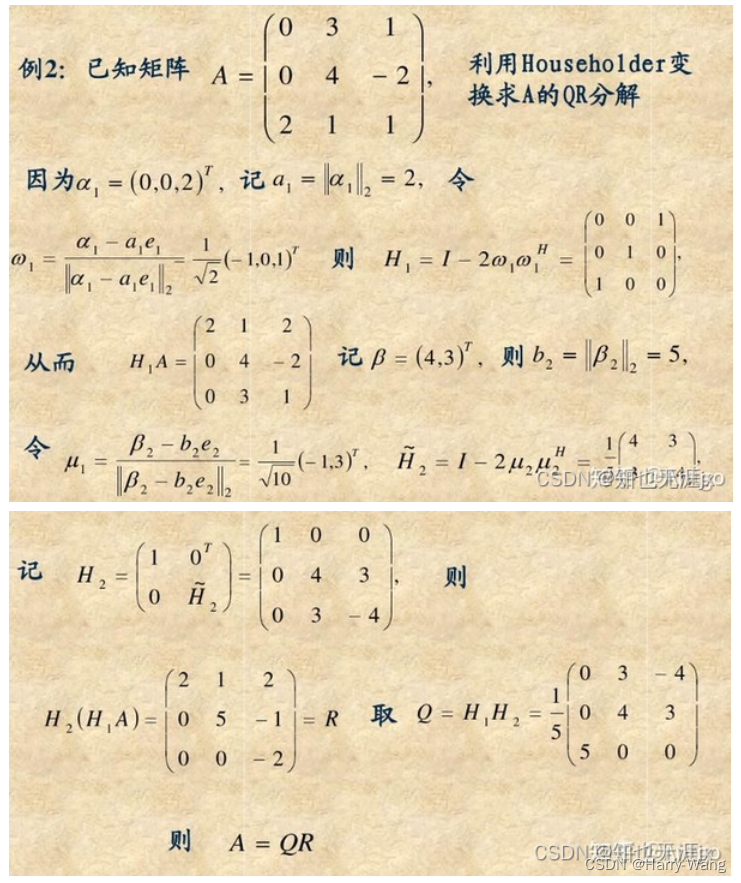 例2: 已知矩阵 A = ( 0 3 1 ; 0 4 -2 ; 2 1 1 ), 利用Householder变换求A的QR分解
因为α₁ = (0,0,2)ᵀ, 记 a₁ = ‖α₁‖₂ = 2, 令
ω₁ = (α₁ - a₁e₁) / ‖α₁ - a₁e₁‖₂ = 1/√2 (-1,0,1)ᵀ 则 H₁ = I - 2ω₁ω₁ᴴ = ( 0 0 1 ; 0 1 0 ; 1 0 0 ),
从而 H₁A = ( 2 1 2 ; 0 4 -2 ; 0 3 1 ) 记 β = (4,3)ᵀ, 则 b₂ = ‖β₂‖₂ = 5,
令 μ₁ = (β₂ - b₂e₂) / ‖β₂ - b₂e₂‖₂ = 1/√10 (-1,3)ᵀ, H̃₂ = I - 2μ₂μ₂ᴴ = 1/5 ( 4 3 ; 3 -4 ),
CSDN @Harry-Wang
记 H₂ = ( 1 0ᵀ ; 0 H̃₂ ) = ( 1 0 0 ; 0 4 3 ; 0 3 -4 ), 则
H₂(H₁A) = ( 2 1 2 ; 0 5 -1 ; 0 0 -2 ) = R 取 Q = H₁H₂ = 1/5 ( 0 3 -4 ; 0 4 3 ; 5 0 0 )
则 A = QR